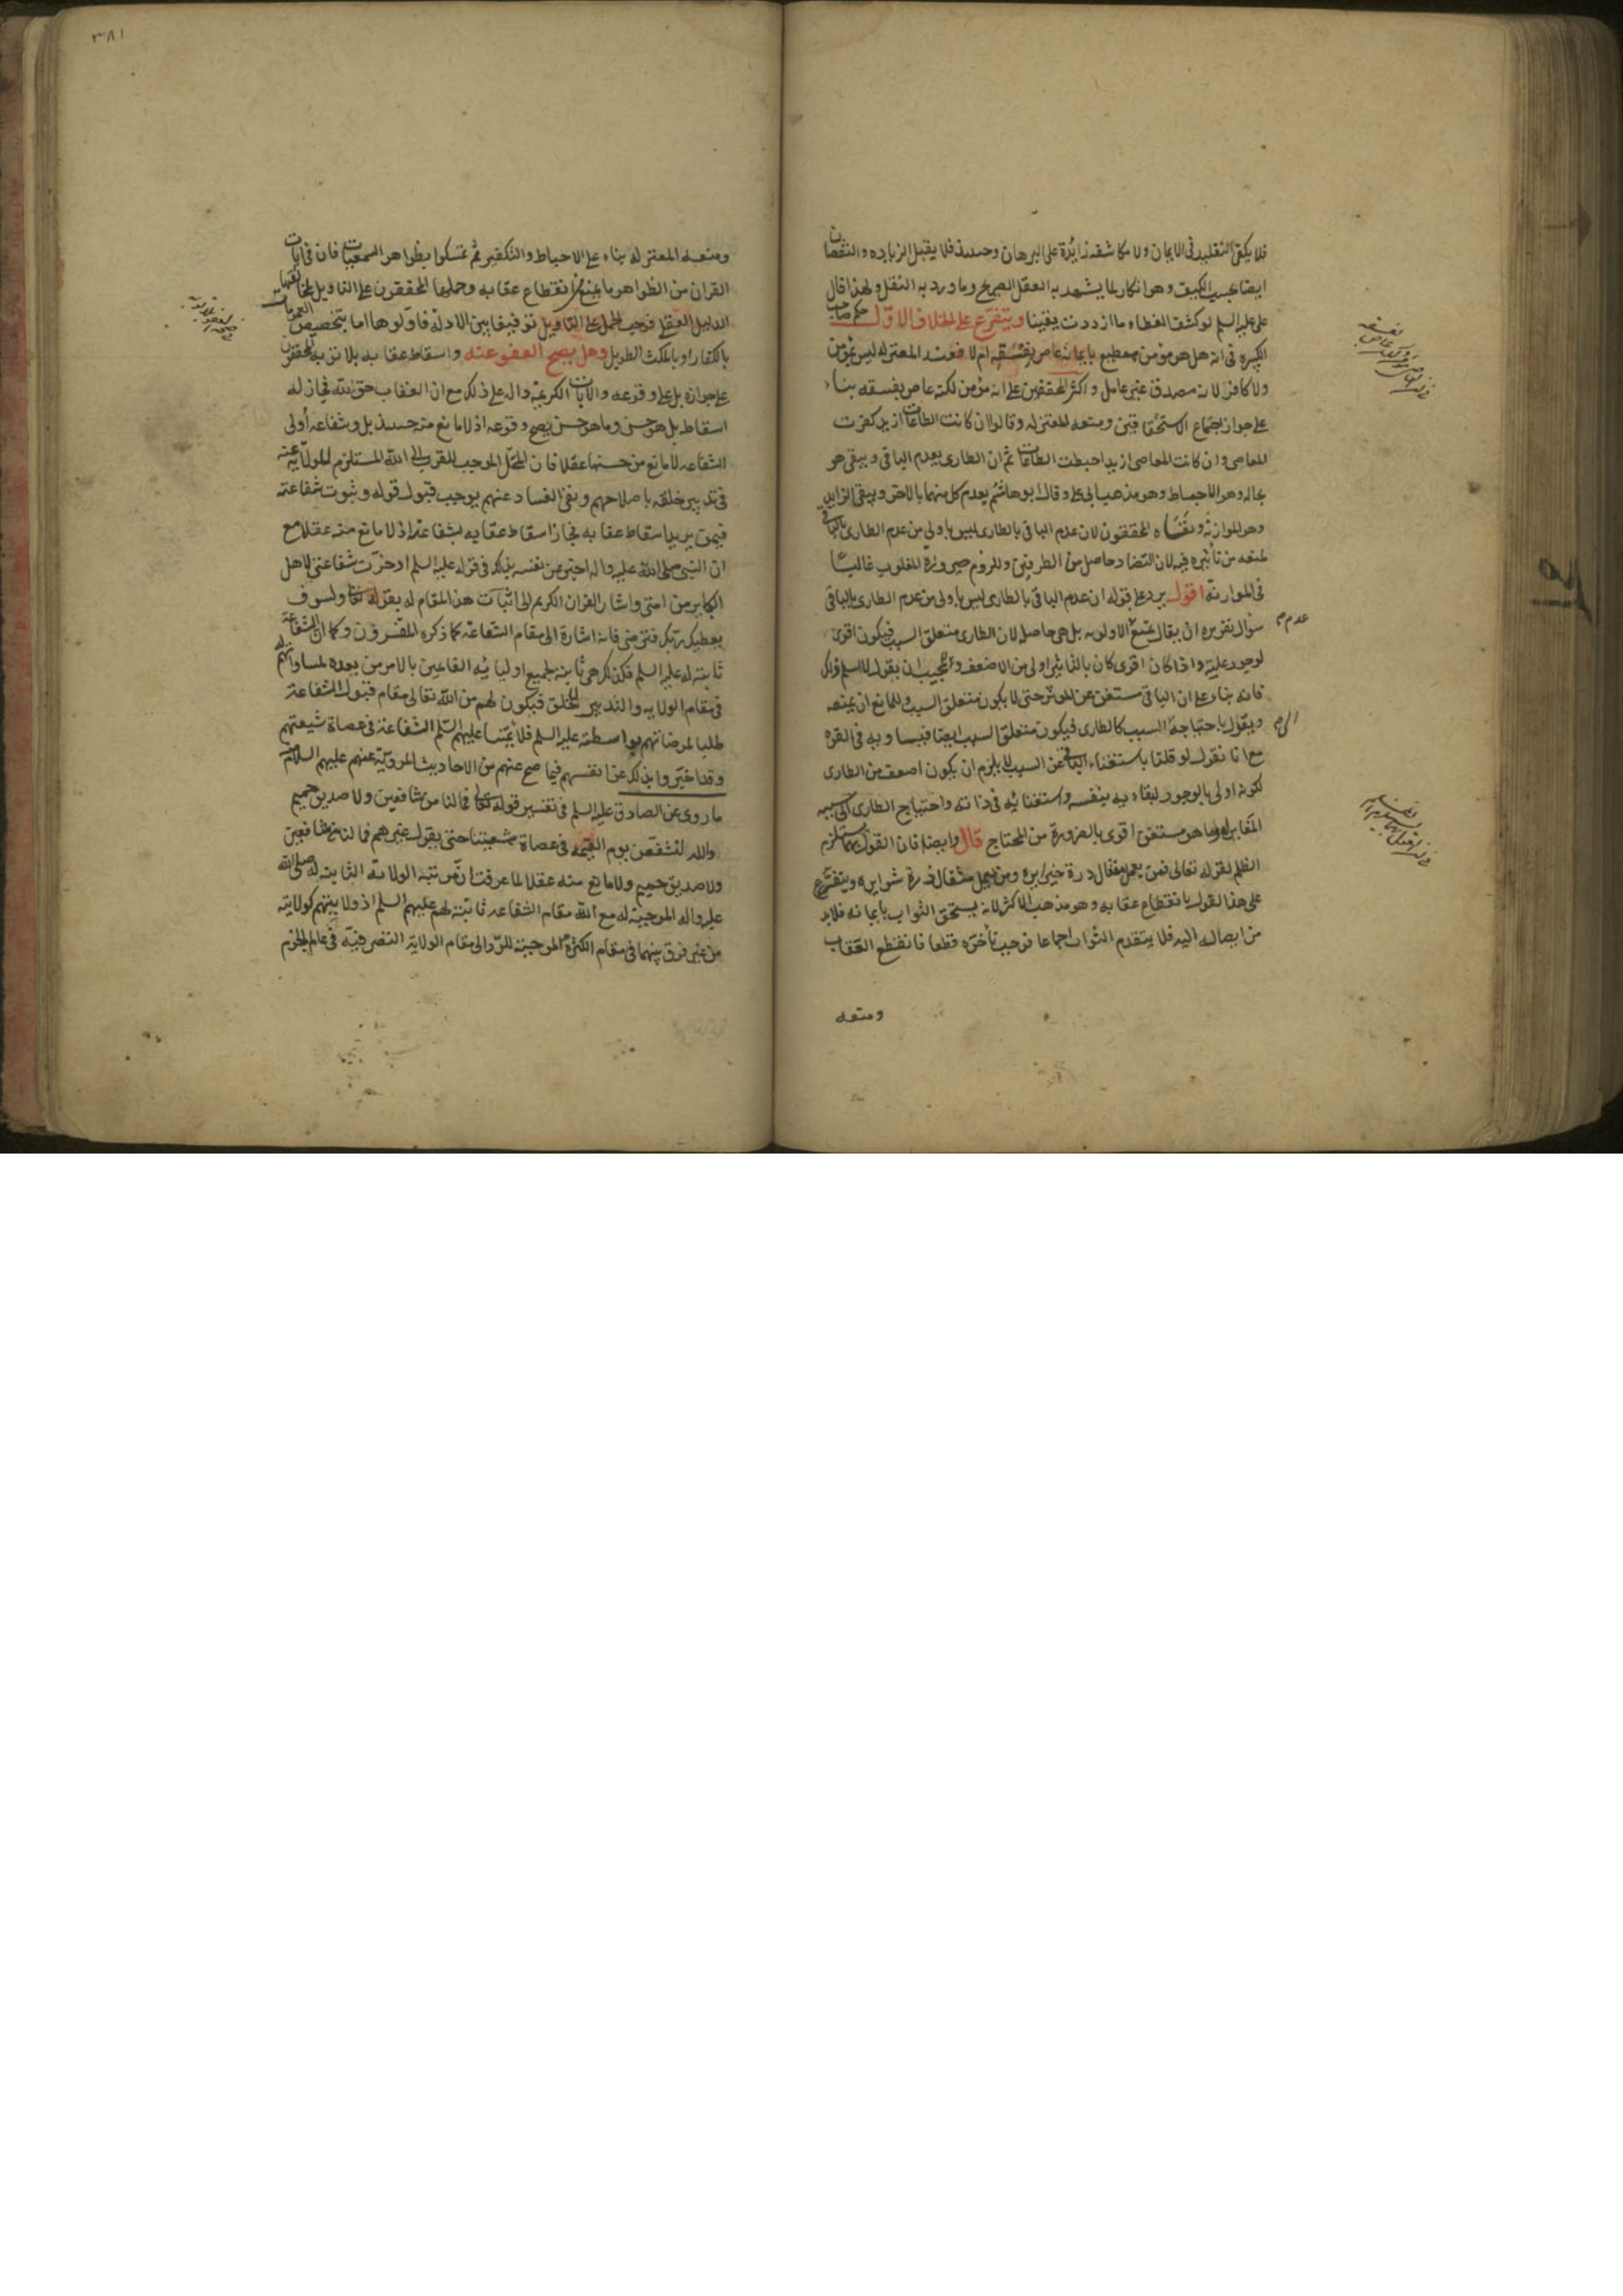 فلا يكفى التقليد فى الايمان ولا مكاشفه زايدة على البرهان وحينئذ فلا يقبل الزياده والنقصان
ايضا بحسب الكيف وهو انكار لما يشهد به العقل الصريح وما ورد به النقل ولهذا قال
على عليه السلم لو كشف الغطاء ما ازددت يقينا ويتفرع على الخلاف الاول حكم صاحب
الكبيره فى انه هل هو مؤمن مطيع بايمانه عاص بفسقه ام لا فعند المعتزله ليس بمؤمن
ولا كافر لانه مصدق غير عامل واكثر المحققين على انه مؤمن لكنه عاص بفسقه بناء
على جواز اجتماع الاستحقاقين ومنعه المعتزله وقالوا ان كانت الطاعات ازيد كفرت
المعاصى وان كانت المعاصى ازيد احبطت الطاعات ثم ان الطارى يعدم الباقى ويبقى هو
بحاله وهو الاحباط وهو مذهب ابى على وقال ابو هاشم يعدم كل منهما بالاخر ويبقى الزايد
وهو الموازنة ونفاه المحققون لان عدم الباقى بالطارى ليس باولى من عدم الطارى بالباقى
لمنعه من تأثيره فيه لان التضاد حاصل من الطرفين وللزوم صيرورة المغلوب غالبا
فى الموازنة اقول يرد على قوله ان عدم الباقى بالطارى ليس باولى من عدم الطارى بالباقى
سؤال تقريره ان يقال يمنع عدم الاولويه بل هى حاصله لان الطارى متعلق السبب فيكون اقوى
لوجود علته واذا كان اقوى كان بالتاثير اولى من الاضعف واجيب ان يقول لا نسلم ذلك
فانه بناء على ان الباقى مستغن عن المؤثر حتى لا يكون متعلق السبب وللمانع ان يمنعه
ويقول باحتياجه الى السبب كالطارى فيكون متعلق السبب ايضا فيساويه فى القوة
مع انا نقول لو قلنا باستغناء الباقى عن السبب لا يلزم ان يكون اضعف من الطارى
لكونه اولى بالوجود لبقاءيه بنفسه واستغنائيه فى ذاته واحتياج الطارى الى سببه
المغاير له وما هو مستغن اقوى بالضرورة من المحتاج قال وايضا فان القول بهما يستلزم
الظلم لقوله تعالى فمن يعمل مثقال ذرة خيرا يره ومن يعمل مثقال ذرة شرا يره ويتفرع
على هذا القول بانقطاع عقابه وهو مذهب الاكثر لانه يستحق الثواب بايمانه فلابد
من ايصاله اليه فلا يتقدم الثواب اجماعا فوجب تأخره قطعا فانقطع العقاب
ومنعه
٣٨١
ومنعه المعتزله بناء على الاحباط والتكفير ثم تمسكوا بظواهر السمعيات فان فى ايات
القران من الظواهر ما يمنع انقطاع عقابه وحملها المحققون على التاويل لمخالفتها
الدليل العقلى فوجب الحمل على التاويل توفيقا بين الادلة فاولوها اما بتخصيص العمومات
بالكفار او بالمكث الطويل وهل يصح العفو عنه واسقاط عقابه بلا توبه المحققون
على جوازه بل على وقوعه والايات الكريمة داله على ذلك مع ان العقاب حق الله فجاز له
اسقاطه بل هو حسن وما هو حسن يصح وقوعه اذ لا مانع منه حينئذ بل وشفاعه أولى
الشفاعه لا مانع من حسنها عقلا فان المحل الموجب للقرب الى الله المستلزم للولايه عنه
فى تدبير خلقه باصلاحهم ونفى الفساد عنهم يوجب قبول قوله وثبوت شفاعته
فيمن يريد اسقاط عقابه فجاز اسقاط عقابه بشفاعته اذ لا مانع منه عقلا مع
ان النبى صلى الله عليه واله اخبر عن نفسه بذلك فى قوله عليه السلم ادخرت شفاعتى لاهل
الكباير من امتى واشار القران الكريم الى اثبات هذا المقام له بقوله تعالى ولسوف
يعطيك ربك فترضى فانه اشارة الى مقام الشفاعة كما ذكره المفسرون وكما ان الشفاعة
ثابتة له عليه السلم فكذلك هى ثابتة لجميع اوليائيه القائمين بالامر من بعده لمساواتهم له
فى مقام الولايه والتدبير للخلق فيكون لهم من الله تعالى مقام قبول الشفاعة
طلبا لمرضاتهم بواسطته عليه السلم فلائمتنا عليهم السلم الشفاعة فى عصاة شيعتهم
وقد اخبروا بذلك عن انفسهم فيما صح عنهم من الاحاديث المروية عنهم عليهم السلام
ما روى عن الصادق عليه السلم فى تفسير قوله تعالى فما لنا من شافعين ولا صديق حميم
والله لنشفعن يوم القيمة فى عصاة شيعتنا حتى يقول غيرهم فما لنا من شافعين
ولا صديق حميم ولا مانع منه عقلا لما عرفت ان مرتبة الولاية الثابتة له صلى الله
عليه واله الموجبة له مع الله مقام الشفاعه ثابتة لهم عليهم السلم اذ ولايتهم كولايته
من غير فرق بينهما فى مقام الكثرة الموجبة للرد الى مقام الولاية التصرفية فى عالم الجزم